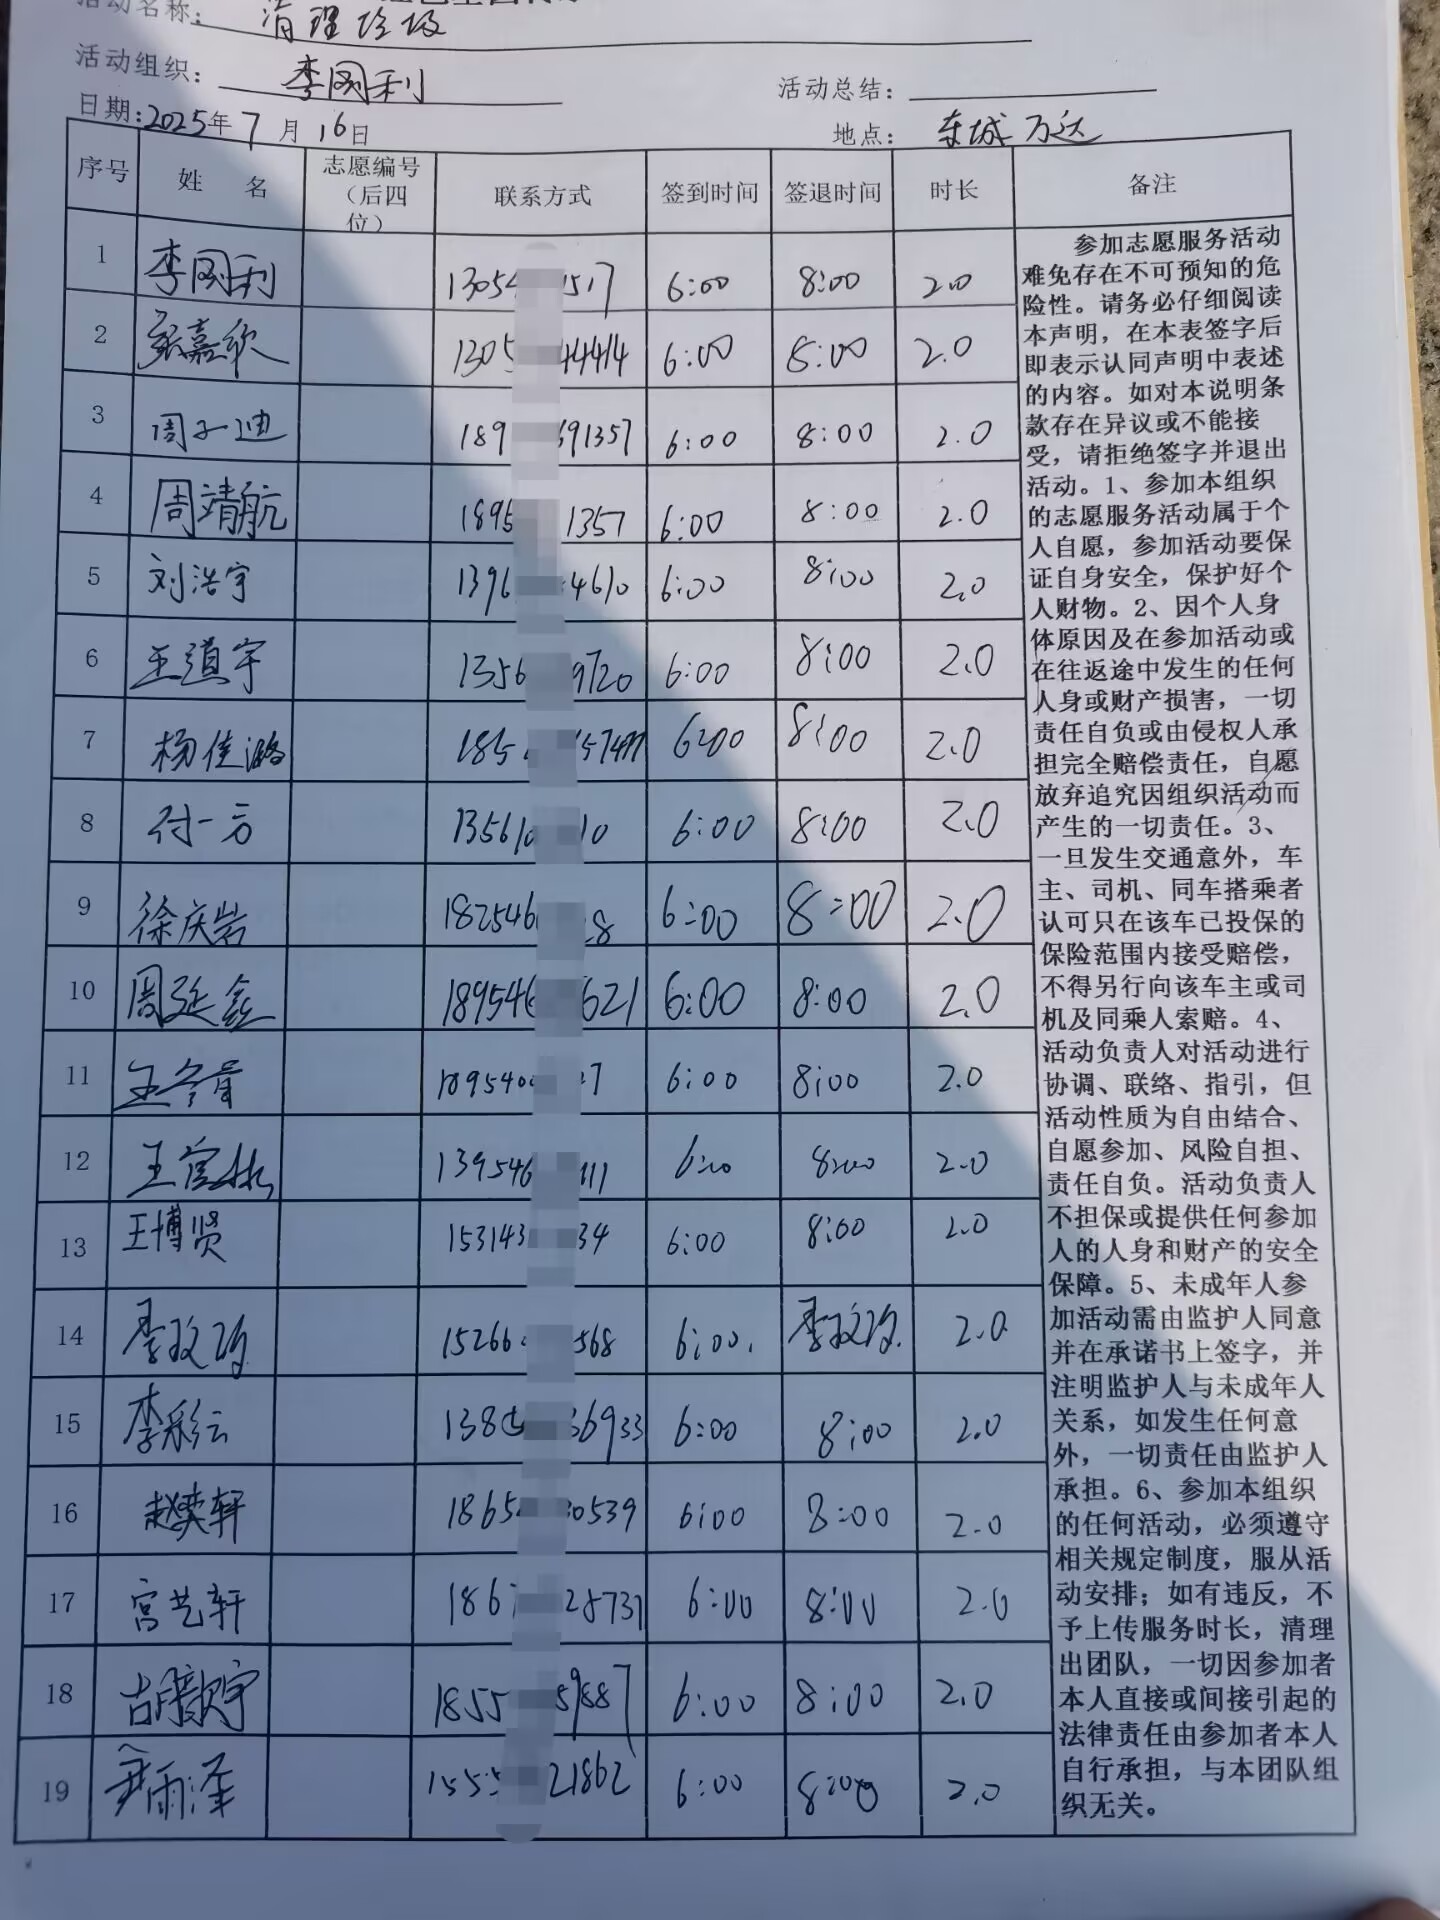 活动名称：清理垃圾
活动组织：李国利
活动总结：
日期：2025年7月16日
地点：东城万达
序号 姓 名 志愿编号（后四位） 联系方式 签到时间 签退时间 时长 备注
1 李国利 13054 1517 6:00 8:00 2.0
2 张嘉欣 1305 44414 6:00 8:00 2.0
3 周子迪 189 691357 6:00 8:00 2.0
4 周靖航 1895 1357 6:00 8:00 2.0
5 刘浩宇 1396 4610 6:00 8:00 2.0
6 王道宇 1356 9720 6:00 8:00 2.0
7 杨佳潞 185 6:00 8:00 2.0
8 付一方 13561 10 6:00 8:00 2.0
9 徐庆岩 182546 28 6:00 8:00 2.0
10 周延鑫 189546 621 6:00 8:00 2.0
11 1895460 7 6:00 8:00 2.0
12 139546 111 6:00 8:00 2.0
13 王博贤 153143 34 6:00 8:00 2.0
14 15266 568 6:00. 2.0
15 李彩云 1385 36933 6:00 8:00 2.0
16 赵奕轩 1865 30539 6:00 8:00 2.0
17 宫艺轩 186 28737 6:00 8:00 2.0
18 1855 59887 6:00 8:00 2.0
19 尹雨泽 1555 21862 6:00 8:00 2.0
参加志愿服务活动
难免存在不可预知的危
险性。请务必仔细阅读
本声明，在本表签字后
即表示认同声明中表述
的内容。如对本说明条
款存在异议或不能接
受，请拒绝签字并退出
活动。1、参加本组织
的志愿服务活动属于个
人自愿，参加活动要保
证自身安全，保护好个
人财物。2、因个人身
体原因及在参加活动或
在往返途中发生的任何
人身或财产损害，一切
责任自负或由侵权人承
担完全赔偿责任，自愿
放弃追究因组织活动而
产生的一切责任。3、
一旦发生交通意外，车
主、司机、同车搭乘者
认可只在该车已投保的
保险范围内接受赔偿，
不得另行向该车主或司
机及同乘人索赔。4、
活动负责人对活动进行
协调、联络、指引，但
活动性质为自由结合、
自愿参加、风险自担、
责任自负。活动负责人
不担保或提供任何参加
人的人身和财产的安全
保障。5、未成年人参
加活动需由监护人同意
并在承诺书上签字，并
注明监护人与未成年人
关系，如发生任何意
外，一切责任由监护人
承担。6、参加本组织
的任何活动，必须遵守
相关规定制度，服从活
动安排；如有违反，不
予上传服务时长，清理
出团队，一切因参加者
本人直接或间接引起的
法律责任由参加者本人
自行承担，与本团队组
织无关。